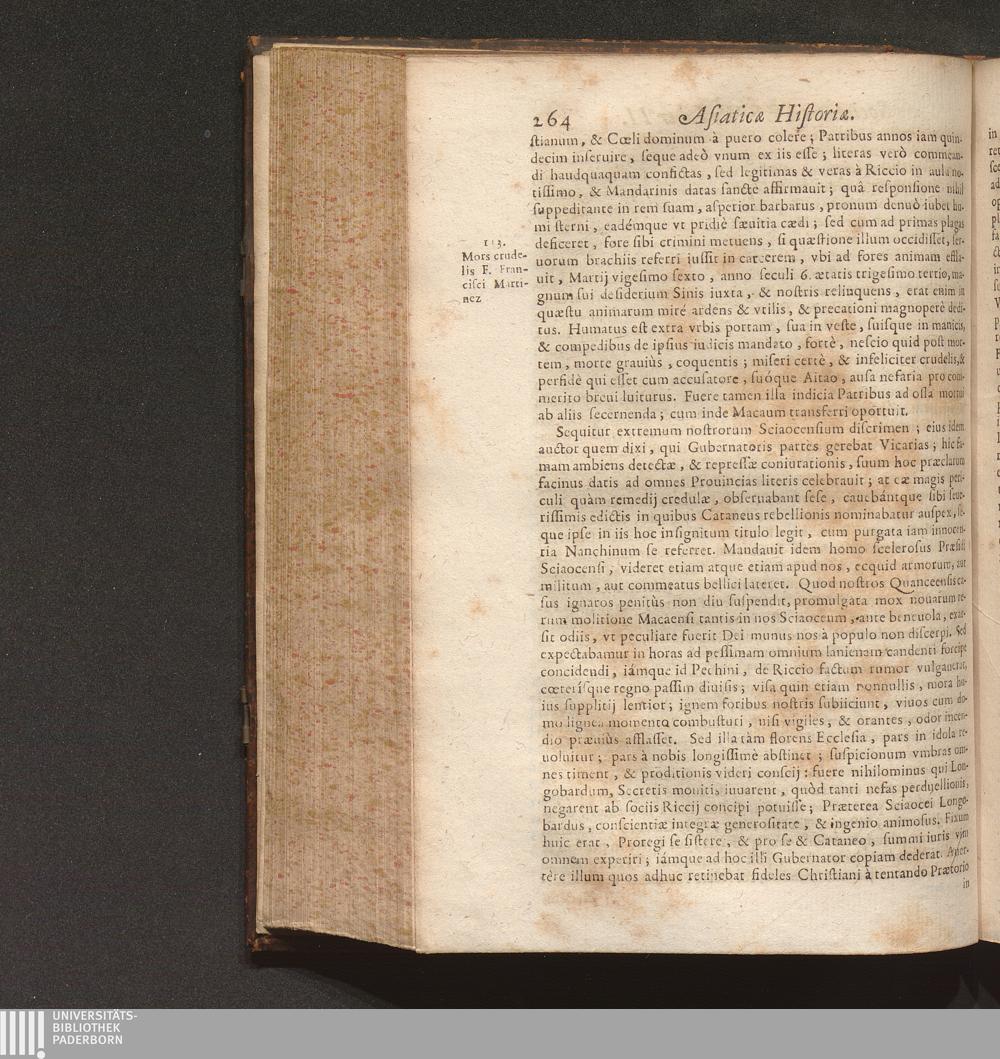 264 Asiaticæ Historiæ.
stianum, & Cœli dominum à puero colere; Patribus annos iam quin-
decim inseruire, seque adeò vnum ex iis esse; literas verò commean-
di haudquaquam confictas, sed legitimas & veras à Riccio in aula no-
tissimo, & Mandarinis datas sanctè affirmauit; quâ responsione nihil
suppeditante in rem suam, asperior barbarus, pronum denuò iubet hu-
mi sterni, eadémque vt pridiè sæuitia cædi; sed cum ad primas plagas
deficeret, fore sibi crimini metuens, si quæstione illum occidisset, ser-
uorum brachiis referri iussit in carcerem, vbi ad fores animam effla-
uit, Martij vigesimo sexto, anno seculi 6. ætatis trigesimo tertio, ma-
gnum sui desiderium Sinis iuxta, & nostris relinquens, erat enim in
quæstu animarum miré ardens & vtilis, & precationi magnoperè dedi-
tus. Humatus est extra vrbis portam, sua in veste, suisque in manicis,
& compedibus de ipsius iudicis mandato, fortè, nescio quid post mor-
tem, morte grauiùs, coquentis; miseri certè, & infeliciter crudelis, &
perfidè qui esset cum accusatore, suóque Aitao, ausa nefaria pro com-
merito breui luiturus. Fuere tamen illa indicia Patribus ad ossa mortui
ab aliis secernenda; cum inde Macaum transferri oportuit.
113.
Mors crude-
lis F. Fran-
cisci Marti-
nez
Sequitur extremum nostrorum Sciaocensium discrimen; eius idem
auctor quem dixi, qui Gubernatoris partes gerebat Vicarias; hic fa-
mam ambiens detectæ, & repressæ coniurationis, suum hoc præclarum
facinus datis ad omnes Prouincias literis celebrauit; at eæ magis peri-
culi quàm remedij credulæ, obseruabant sese, cauebántque sibi seue-
rissimis edictis in quibus Cataneus rebellionis nominabatur auspex, se-
que ipse in iis hoc insignitum titulo legit, cum purgata iam innocen-
tia Nanchinum se referret. Mandauit idem homo scelerosus Præsidi
Sciaocensi, videret etiam atque etiam apud nos, ecquid armorum, aut
militum, aut commeatus bellici lateret. Quod nostros Quanceensis ca-
sus ignaros penitùs non diu suspendit, promulgata mox nouarum re-
rum molitione Macaensi tantis in nos Sciaoceum, ante beneuola, exar-
sit odiis, vt peculiare fuerit Dei munus nos à populo non discerpi. Sed
expectabamur in horas ad pessimam omnium lanienam candenti forcipe
concidendi, iámque id Pechini, de Riccio factum rumor vulgauerat,
cœterísque regno passim diuisis; visa quin etiam nonnullis, mora hu-
ius supplitij lentior; ignem foribus nostris subiiciunt, viuos cum do-
mo lignea momento combusturi, nisi vigiles, & orantes, odor incen-
dio præuiùs afflasset. Sed illa tàm florens Ecclesia, pars in idola re-
uoluitur; pars à nobis longissimè abstinet; suspicionum vmbras om-
nes timent, & proditionis videri conscij: fuere nihilominus qui Lon-
gobardum, Secretis monitis iuuarent, quòd tanti nefas perduellionis,
negarent ab sociis Riccij concipi potuisse; Præterea Sciaocei Longo-
bardus, conscientiæ integræ generositate, & ingenio animosus. Fixum
huic erat, Protegi se sistere, & pro se & Cataneo, summi iuris vim
omnem experiri; iámque ad hoc illi Gubernator copiam dederat. Auer-
tère illum quos adhuc retinebat fideles Christiani à tentando Prætorio
in
UNIVERSITÄTS-
BIBLIOTHEK
PADERBORN